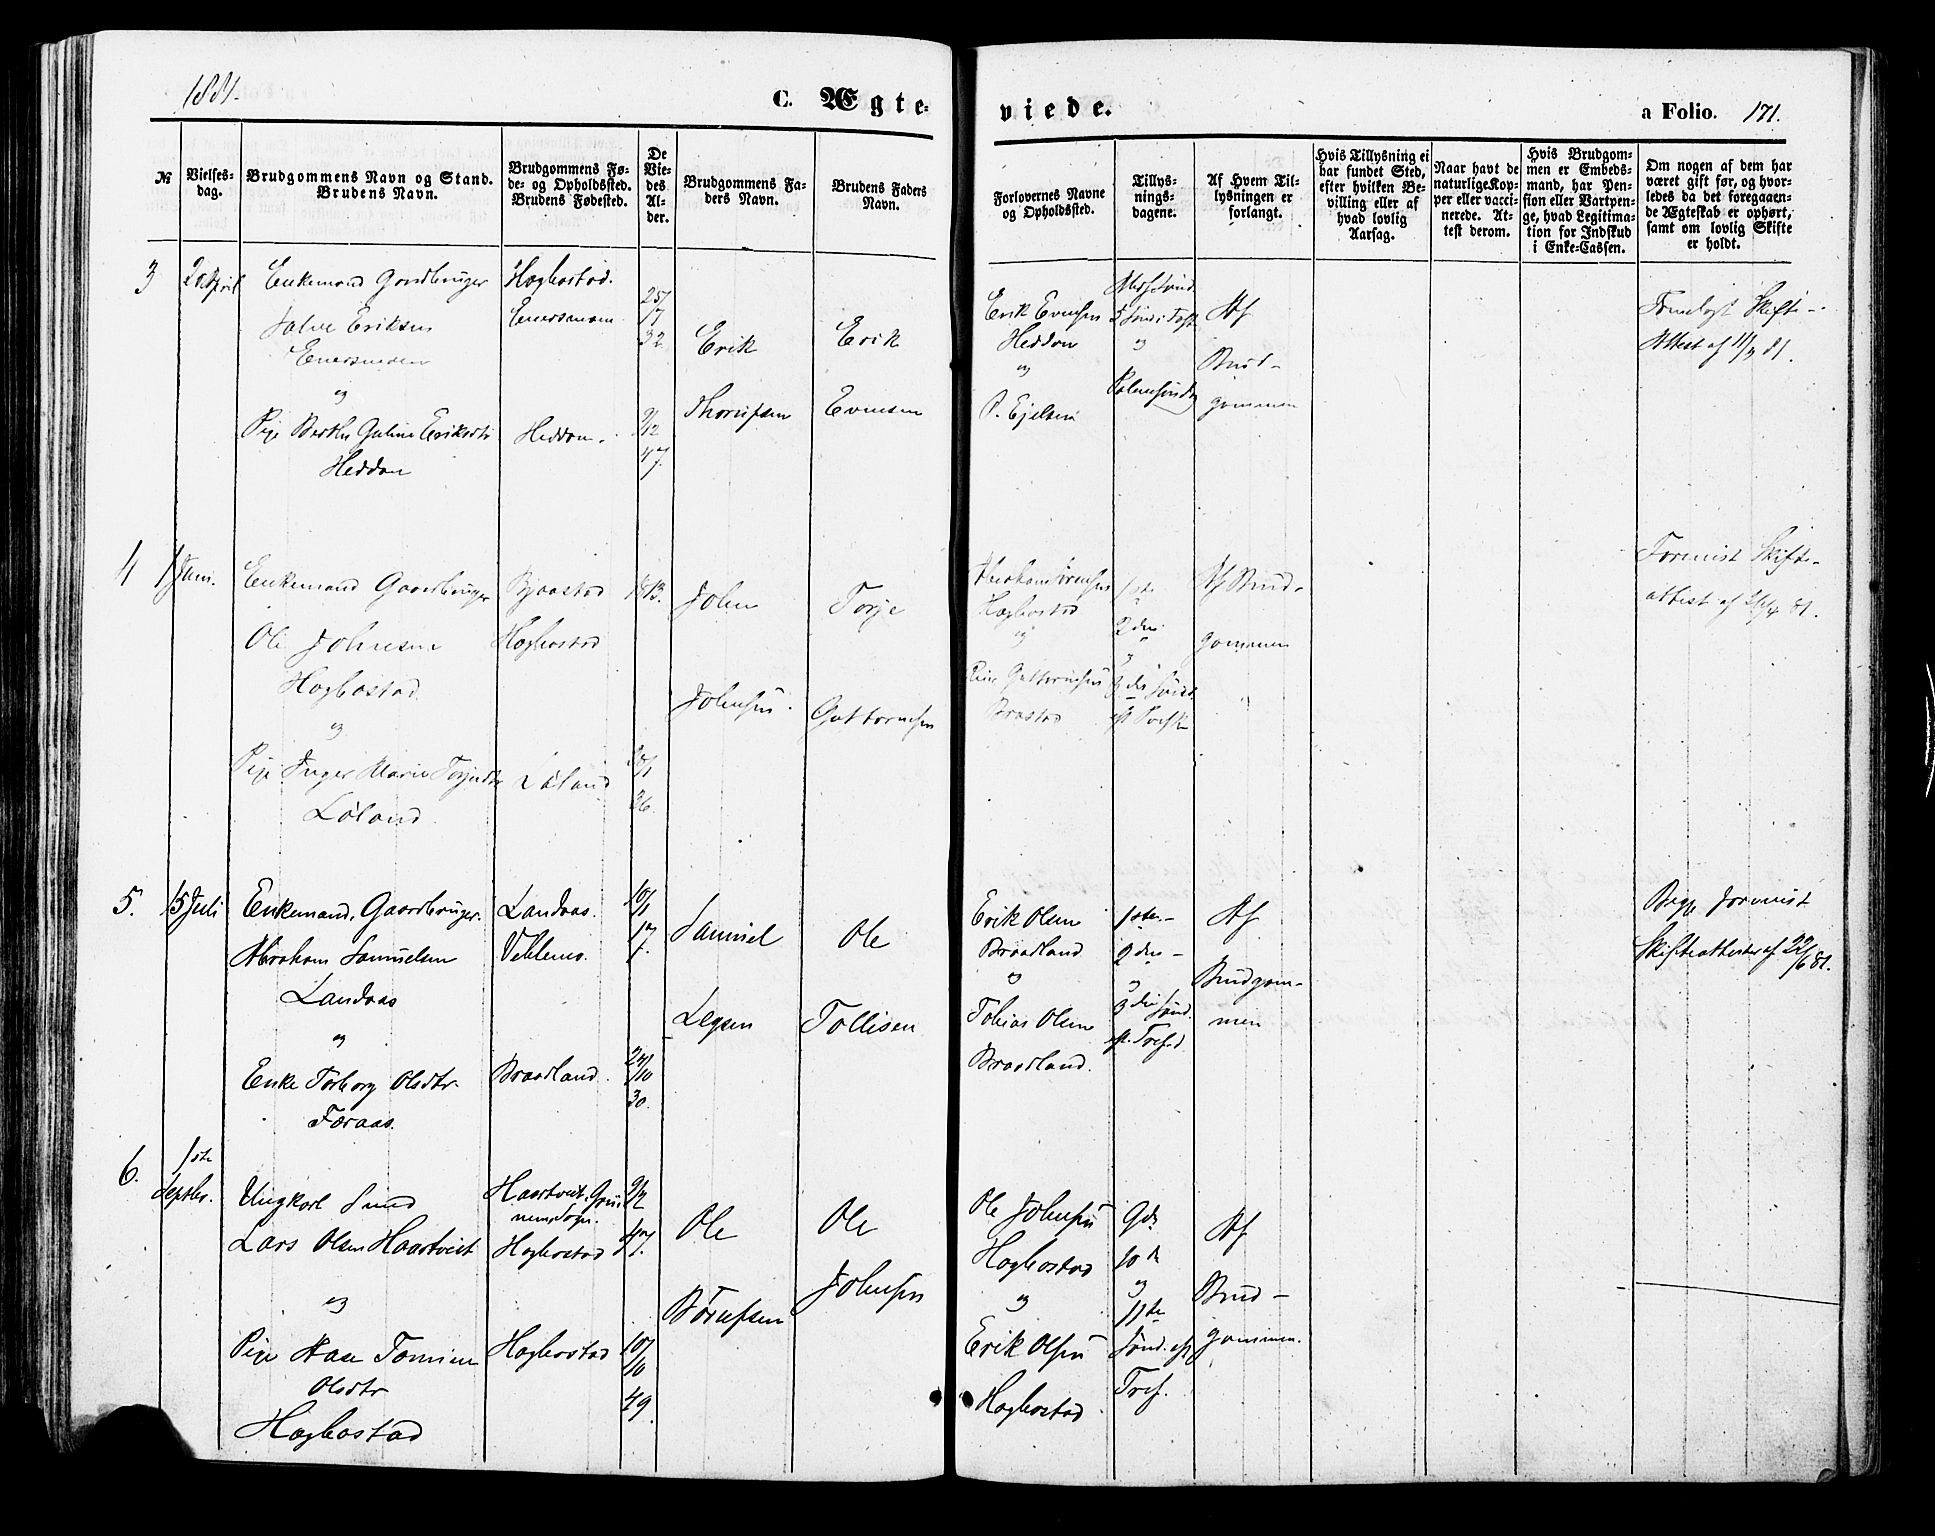 1881.
C. Ægte-
viede.
a Folio. 171.
№
Vielses-
dag.
Brudgommens Navn og Stand.
Brudens Navn.
Brudgommens Fø-
de- og Opholdssted.
Brudens Fødested.
De
Vie-
des
Al-
der.
Brudgommens Fa-
ders Navn.
Brudens Faders
Navn.
Forlovernes Navne
og Opholdssted.
Tillys-
nings-
dagene.
Af Hvem Til-
lysningen er
forlangt.
Hvis Tillysning ei
har fundet Sted,
efter hvilken Be-
villing eller af
hvad lovlig
Aarsag.
Naar havt de
naturlige Kop-
per eller vacci-
nerede. At-
test derom.
Hvis Brudgom-
men er Embeds-
mand, har Pen-
sion eller Vartpen-
ge, hvad Legitima-
tion for Indskud
i Enke-Cassen.
Om nogen af dem har
været gift før, og hvor-
ledes da det foregaaen-
de Ægteskab er ophørt,
samt om lovlig Skifte
er holdt.
3
20 April
Enkemand Gaardbruger
Salve Eriksen
og
Pige Berthe Guline Eriksdtr
Heddan
Hægbostad.
Heddan.
25/
17
32
9/
12
47.
Erik
Erik
Evensen
Erik Evensen
Heddan
og
P. Ejelsen
og
Palmesøndag
Af
Brud-
gommen
Fremlagt Skifte-
Attest af 11/4 81.
4
1 Juni.
Enkemand Gaardbruger
Ole Johnesen
Hægbostad
og
Pige Inger Marie Torjesdtr
Løland
Bjaastad
Hægbostad
Løland
1813.
26.
John
Johnsen.
Torje
Guttormsen
Hægbostad
og
Guttormsen
Brastad
1ste
2den
og
3die Sønd.
eft. Paaske
Af Brud-
gommen
Forevist Skifte-
attest af 26/4 81.
5.
15 Juli
Enkemand, Gaardbruger.
Abraham Samuelsen
Landaas
og
Enke Torborg Olsdtr
Færaas.
Landaas.
Veklemo.
Braadland.
10/
1
17.
24/
10
30.
Samuel
Ole
Tollisen
Erik Olsen
Braadland
og
Tobias Olsen
Braadland.
1ste-
2den-
og
3die Sønd.
eft. Tref.d
Af
Brudgom-
men
Begge forevist
Skifteattester af 22/6 81.
6.
1ste
Septbr.
Ungkarl Smed
Lars Olsen Haartveit
og
Pige Aase Tomine
Olsdtr
Hægbostad
Haartveit, Grin-
nem Sogn.
Hægbostad
Hægbostad
9/2
47.
10/
10
49.
Ole
Ole
Johnsen
Ole Johnsen
Hægbostad
og
Erik Olsen
Hægbostad
9de
10de
og
11te
Sønd. eft
Tref.
Af
Brud-
gommen.